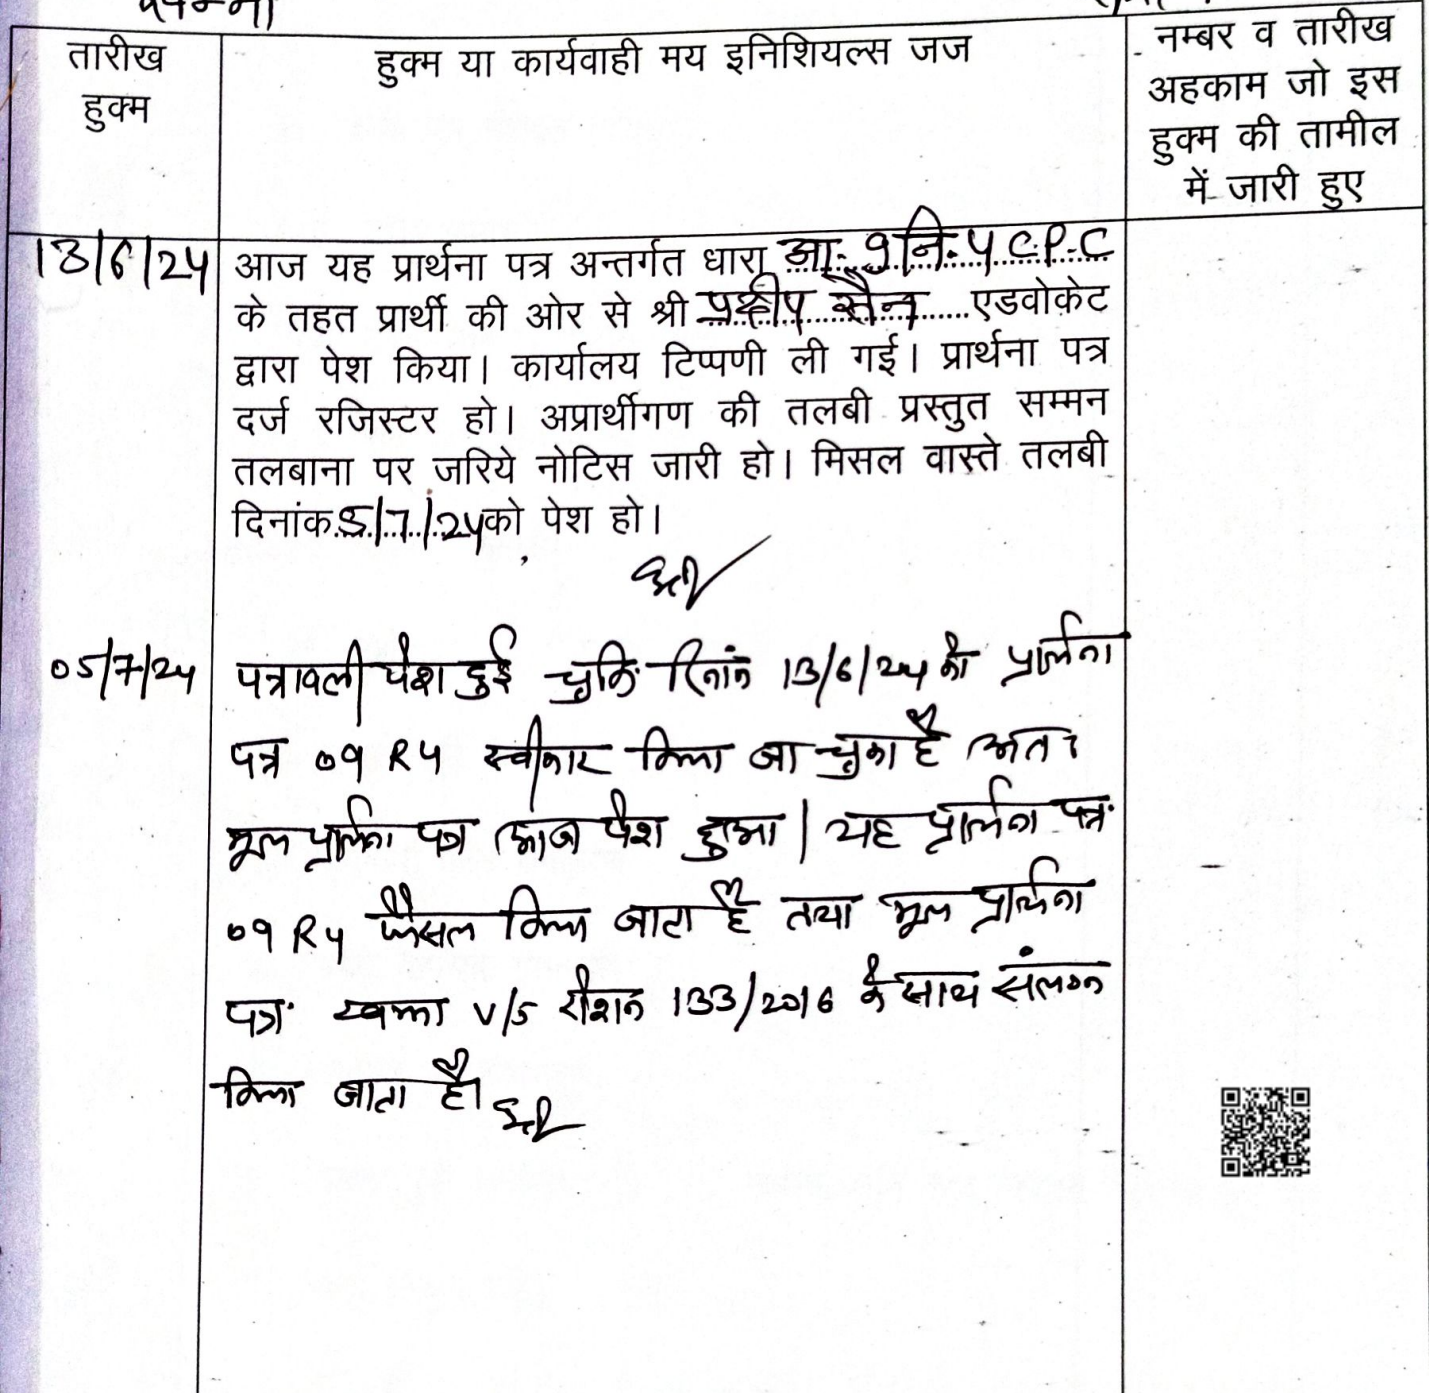 तारीख
हुक्म
हुक्म या कार्यवाही मय इनिशियल्स जज
नम्बर व तारीख
अहकाम जो इस
हुक्म की तामील
में जारी हुए
13/6/24 आज यह प्रार्थना पत्र अन्तर्गत धारा आ. 9 नि. 4 C.P.C
के तहत प्रार्थी की ओर से श्री प्रदीप सैन एडवोकेट
द्वारा पेश किया। कार्यालय टिप्पणी ली गई। प्रार्थना पत्र
दर्ज रजिस्टर हो। अप्रार्थीगण की तलबी प्रस्तुत सम्मन
तलबाना पर जरिये नोटिस जारी हो। मिसल वास्ते तलबी
दिनांक 5/7/24 को पेश हो।
05/7/24 पत्रावली पेश हुई चुकि दिनांक 13/6/24 को प्रार्थना
पत्र 09 R4 स्वीकार किया जा चुका है अतः
मूल प्रार्थना पत्र आज पेश हुआ। यह प्रार्थना पत्र
09 R4 फैसल किया जाता है तथा मूल प्रार्थना
पत्र V/S रोशन 133/2016 के साथ संलग्न
किया जाता है।